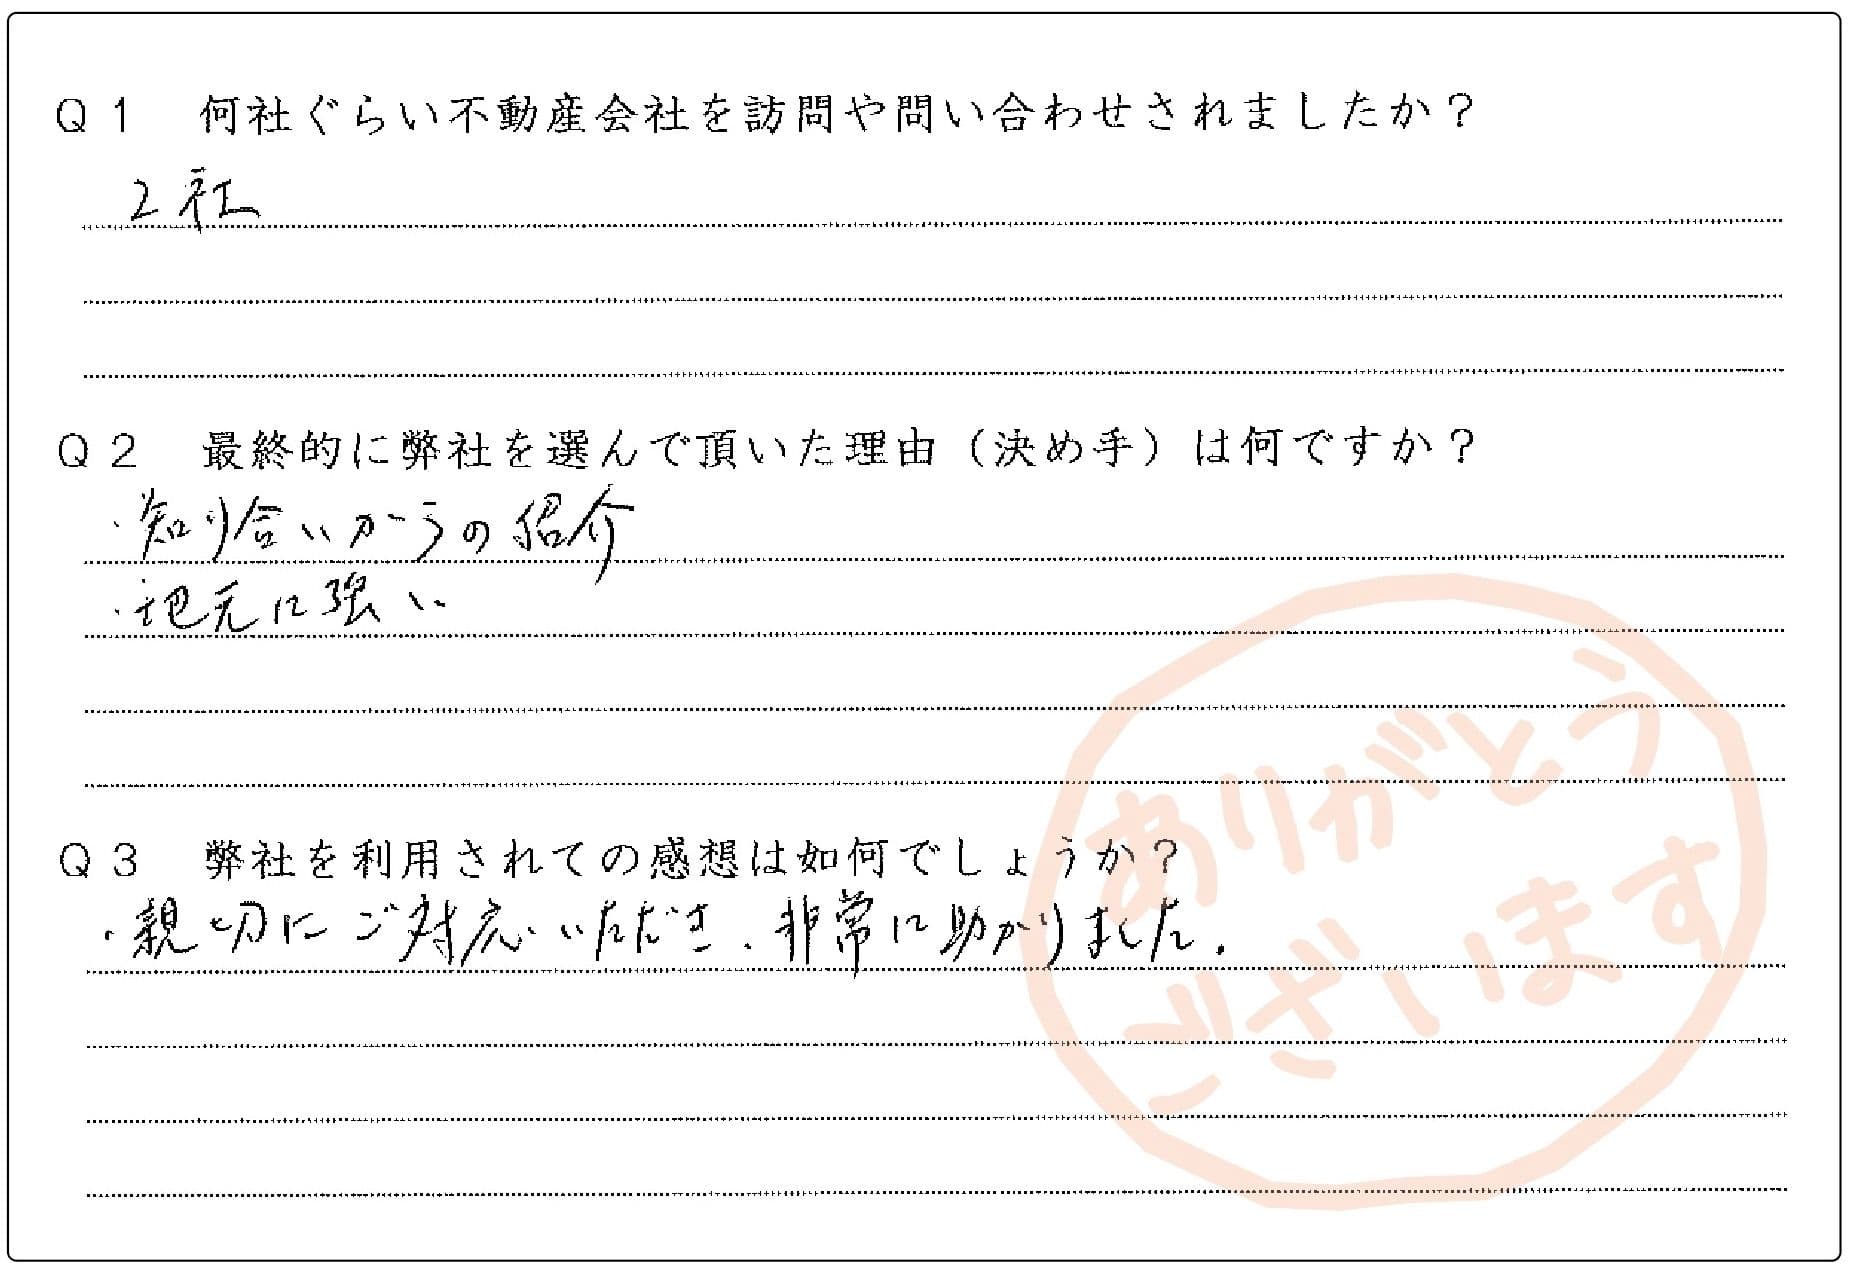 Q1 何社ぐらい不動産会社を訪問や問い合わせされましたか？
2社
Q2 最終的に弊社を選んで頂いた理由（決め手）は何ですか？
・知り合いからの紹介
・地元に強い
Q3 弊社を利用されての感想は如何でしょうか？
・親切にご対応いただき、非常に助かりました。
ありがとう
ございます